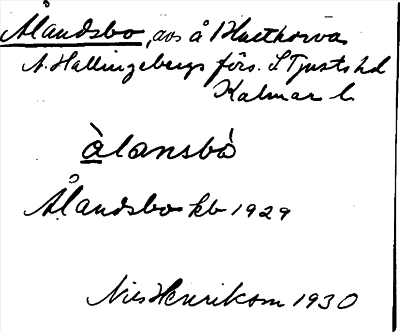 Ålandsbo, avs å Hultborva
N. Hallingebergs förs. S Tjusts hd
Kalmar l.
àlansbò
Ålandsbo kb 1929
Nils Henriksson 1930